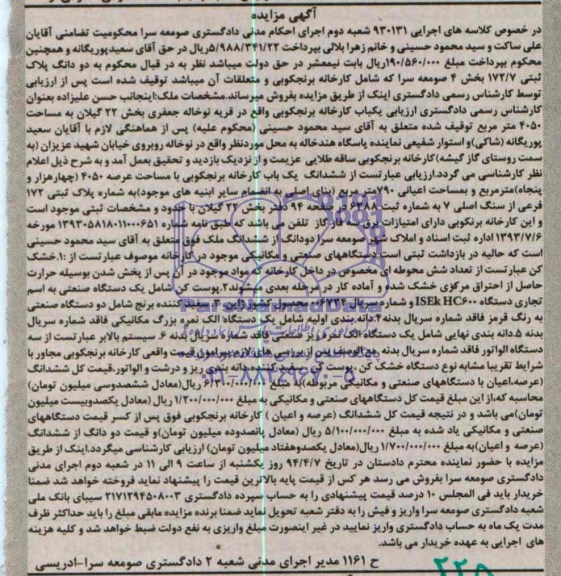 آگهی مزایده
در خصوص کلاسه های اجرایی ۹۳۰۱۳۱ شعبه دوم اجرای احکام مدنی دادگستری صومعه سرا محکومیت تضامنی آقایان
علی ساکت و سید محمود حسینی و خانم زهرا بلالی بپرداخت ۵/۹۸۸/۳۴۱/۲۲ریال در حق آقای سعید پوریگانه و همچنین
محکوم بپرداخت مبلغ ۱۹۰/۵۶۰/۰۰۰ریال بابت نیمعشر در حق دولت میباشد نظر به در قبال محکوم به دو دانگ پلاک
ثبتی ۱۷۲/۷ بخش ۴ صومعه سرا که شامل کارخانه برنجکوبی و متعلقات آن میباشد توقیف شده است پس از ارزیابی
توسط کارشناس رسمی دادگستری اینک از طریق مزایده بفروش میرساند.مشخصات ملک:اینجانب حسن علیزاده بعنوان
کارشناس رسمی دادگستری ارزیابی یکباب کارخانه برنجکوبی واقع در قریه نوخاله جعفری بخش ۲۲ گیلان به مساحت
۴۰۵۰ متر مربع توقیف شده متعلق به آقای سید محمود حسینی (محکوم علیه) پس از هماهنگی لازم با آقایان سعید
پوریگانه (شاکی)و استوار شفیعی نماینده پاسگاه هندخاله به محل موردنظر واقع در نوخاله روبروی خیابان شهید عزیزان (به
سمت روستای گاز گیشه)کارخانه برنجکوبی ساقه طلایی عزیمت و از نزدیک بازدید و تحقیق بعمل آمد و به شرح ذیل اعلام
نظر کارشناسی می گردد.ارزیابی عبارتست از ششدانگ یک باب کارخانه برنجکوبی با مساحت عرصه ۴۰۵۰ (چهارهزار و
پنجاه)مترمربع و بمساحت اعیانی ۷۹۰مترمربع (بنای اصلی به انضمام سایر ابنیه های موجود)به شماره پلاک ثبتی ۱۷۲
فرعی از سنگ اصلی ۷ به شماره ثبت ۶۳۸۸ صفحه ۹۴ دفتر بخش ۲۲ گیلان با حدود و مشخصات ثبتی موجود است
و این کارخانه برنکوبی دارای امتیازات برق سه فاز گاز تلفن می باشد که طبق نامه شماره ۱۳۹۳۰۵۸۱۸۰۱۱۰۰۰۶۵۱ مورخه
۱۳۹۳/۷/۶ اداره ثبت اسناد و املاک شهر صومعه سرا دودانگ از ششدانگ ملک فوق متعلق به آقای سید محمود حسینی
است که حالیه در بازداشت ثبتی است.دستگاههای صنعتی و مکانیکی موجود در کارخانه موصوف عبارتست از :۱.خشک
کن عبارتست از تعداد شش محوطه ای مخصوص در داخل کارخانه که مواد موجود در آن پس از پخش شدن بوسیله حرارت
حاصل از احتراق مرکزی خشک شده و آماده کار در مرحله بعدی میشوند۲.پوست کن شامل یک دستگاه صنعتی به اسم
تجاری دستگاه ISEKi HC۶۰۰ و شماره سریال ۰۰۶۷۳۲ محصول کشور ژاپن.۳.سفید کننده برنج شامل دو دستگاه صنعتی
به رنگ قرمز فاقد شماره سریال بدنه ۴:دانه بندی اولیه شامل یک دستگاه الک نمره بزرگ مکانیکی فاقد شماره سریال
بدنه ۵:دانه بندی نهایی شامل یک دستگاه الک نمره ریز صنعتی فاقد شماره سریال بدنه ۶. سیستم بالابر عبارتست از سه
دستگاه الواتور فاقد شماره سریال بدنه پس از بررسی های لازم پیرامون قیمت واقعی کارخانه برنجکوبی مجاور با
شرایط تقریبا مشابه نوع دستگاه خشک کن پوست کن سفید کننده دانه بندی ریز و درشت و الواتور،قیمت کل ششدانگ
(عرصه،اعیان با دستگاههای صنعتی و مکانیکی مربوطه)به مبلغ ۶/۳۰۰/۰۰۰/۰۰۰ ریال(معادل ششصدوسی میلیون تومان)
محاسبه که،از این مبلغ قیمت کل دستگاههای صنعتی و مکانیکی به مبلغ ۱/۲۰۰/۰۰۰/۰۰۰ ریال (معادل یکصدوبیست میلیون
تومان)می باشد و در نتیجه قیمت کل ششدانگ (عرصه و اعیان ) کارخانه برنجکوبی فوق پس از کسر قیمت دستگاههای
صنعتی و مکانیکی یاد شده به مبلغ ۵/۱۰۰/۰۰۰/۰۰۰ ریال (معادل پانصدوده میلیون تومان)و قیمت دو دانگ از ششدانگ
(عرصه و اعیان)به مبلغ ۱/۷۰۰/۰۰۰/۰۰۰ ریال(معادل یکصدوهفتاد میلیون تومان) ارزیابی کارشناسی میگردد.اینک از طریق
مزایده با حضور نماینده محترم دادستان در تاریخ ۹۴/۴/۷ روز یکشنبه از ساعت ۹ الی ۱۱ در شعبه دوم اجرای مدنی
دادگستری صومعه سرا بفروش می رسد هر کس از قیمت پایه بالاترین قیمت را پیشنهاد نماید فروخته خواهد شد ضمنا
خریدار باید فی المجلس ۱۰ درصد قیمت پیشنهادی را به حساب سپرده دادگستری ۲۱۷۱۲۹۴۵۰۸۰۰۳ سیبای بانک ملی
شعبه دادگستری صومعه سرا واریز و فیش را به دفتر شعبه تحویل نماید ضمنا برنده مزایده مابقی مبلغ را باید حداکثر ظرف
مدت یک ماه به حساب دادگستری واریز نمایید در غیر اینصورت مبلغ واریزی به نفع دولت ضبط خواهد شد و کلیه هزینه
های اجرایی به عهده خریدار می باشد.
ح ۱۱۶۱ مدیر اجرای مدنی شعبه ۲ دادگستری صومعه سرا-ادریسی